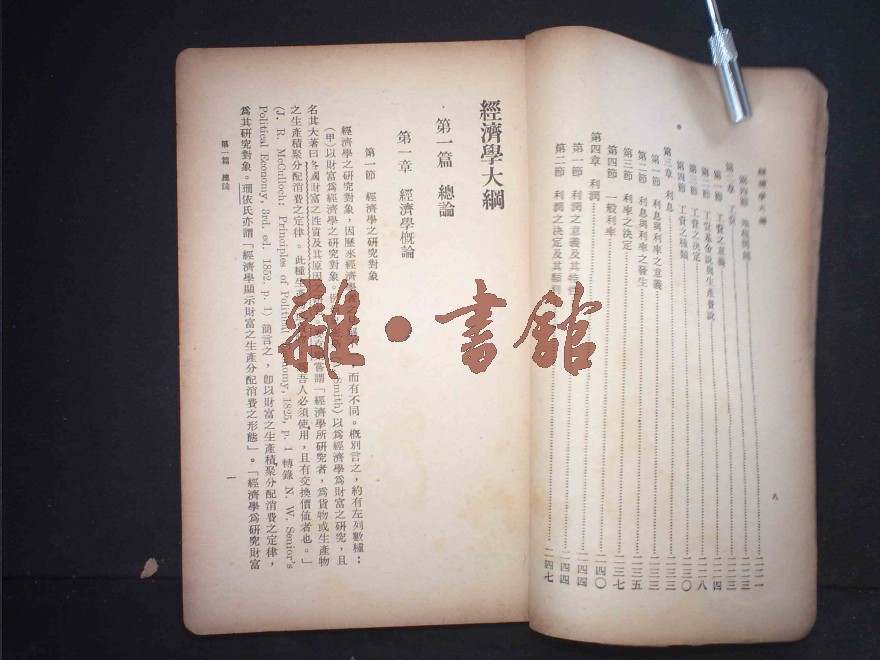 經濟學大綱
八
第四節　地租問題 一二一
第三章　工資 一二三
第一節　工資之意義 一二三
第二節　工資基金說與生產費說 一二四
第三節　工資之決定 一二八
第四節　工資之種類 一三〇
第三章　利息 一三三
第一節　利息與利率之意義 一三三
第二節　利息與利率之發生 一三五
第三節　利率之決定 一三七
第四節　一般利率 一四〇
第四章　利潤 一四四
第一節　利潤之意義及其特性 一四四
第二節　利潤之決定及其 一四七
經濟學大綱
第一篇　總論
第一章　經濟學概論
第一節　經濟學之研究對象
經濟學之研究對象，因歷來經濟學者 而有不同。概別言之，約有左列數種：
（甲）以財富為經濟學之研究對象。 Smith）以為經濟學為財富之研究，且
名其大著曰各國財富之性質及其原因之 嘗謂「經濟學所研究者，為貨物或生產物
之生產積聚分配消費之定律。此種生產 吾人必須使用，且有交換價值者也。」
(J. R. McCulloch: Principles of Political Economy, 1825, p. 1 轉錄 N. W. Senior's
Political Economy, 3rd. ed. 1852. p. 1) 簡言之，卽以財富之生產積聚分配消費之定律，
為其研究對象。瑠依氏亦謂「經濟學顯示財富之生產分配消費之形態」。「經濟學為研究財富
第一篇　總論
一
雜·書館